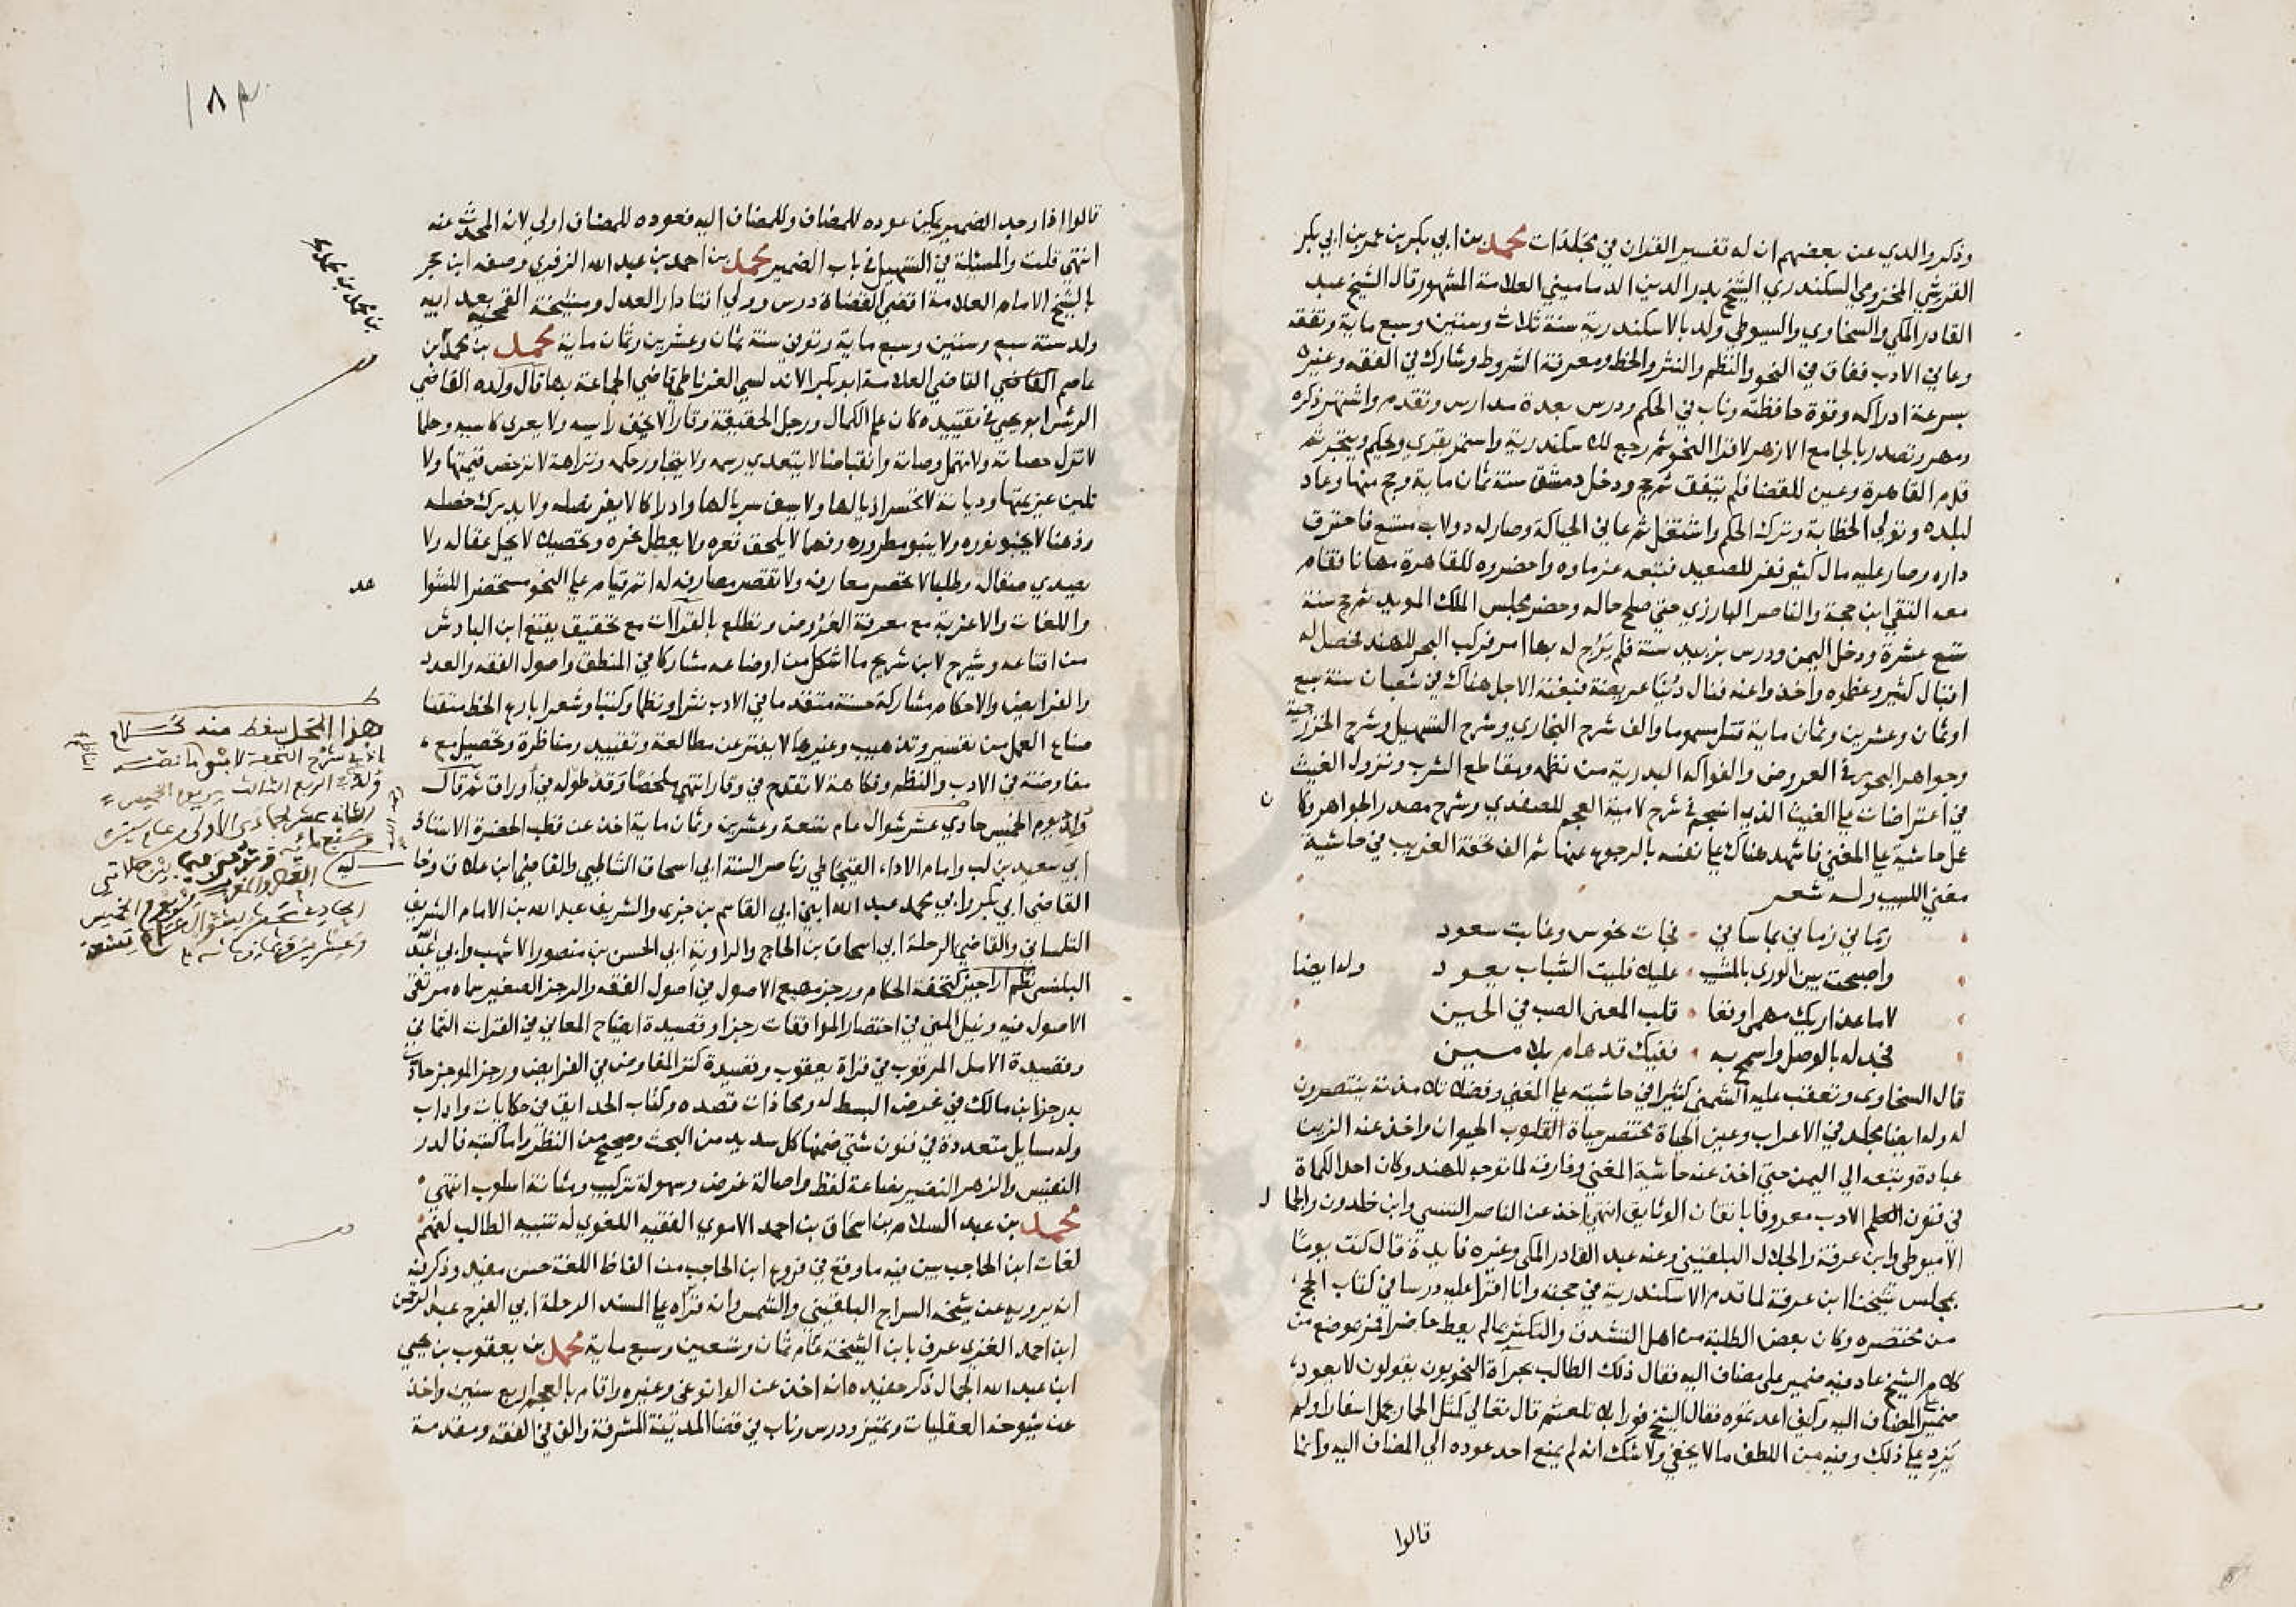 وذكر والدي عن بعضهم ان له تفسير القران في مجلدات محمد بن ابي بكر بن عمر بن ابي بكر
القرشي المخزومي السكندري الشيخ بدر الدين الدماميني العلامة المشهور قال الشيخ عبد
القادر المكي والسخاوي والسيوطي ولد بالاسكندرية سنة ثلاث وستين وسبع ماية وتفقه
وعاني الادب ففاق في النحو والنظم والنثر والخط ومعرفة الشروط وشارك في الفقه وغيره
بسرعة ادراكه وقوة حافظته وناب في الحكم ودرس بعدة مدارس وتقدم واشتهر ذكره
ومهر وتصدر بالجامع الازهر لاقرا النحو ثم رجع للاسكندرية واستمر يقري ويحكم ويتجر ثم
قدم القاهرة وعين للقضا فلم يتفق ثم حج ودخل دمشق سنة ثمان ماية وحج منها وعاد
لبلده وتولي الخطابة وترك الحكم واشتغل ثم عاني الحياكة وصار له دولاب متسع فاحترق
داره وصار عليه مال كثير ففر للصعيد فتبعه غرماوه واحضروه للقاهرة مهانا فقام
معه التقي ابن حجة والناصر البارزي حتي صلح حاله وحضر مجلس الملك المويد ثم حج سنة
تسع عشرة ودخل اليمن ودرس بزبيد سنة فلم يرج له بها امر فركب البحر للهند فحصل له
اقبال كثير وعظموه واخذوا عنه فنال دنيا عريضة فبغته الاجل هناك في شعبان سنة سبع
او ثمان وعشرين وثمان ماية قتل مسموما والف شرح البخاري وشرح التسهيل وشرح الخزرجية
وجواهر البحور في العروض والفواكه البدرية من نظمه ومقاطع الشرب ونزول الغيث
في اعتراضات علي الغيث الذي انسجم في شرح لامية العجم للصفدي وشرح مصدر الجواهر وكان
عمل حاشية علي المغني فاشهد هناك علي نفسه بالرجوع عنها ثم الف تحفة الغريب في حاشية
مغني اللبيب وله شعر
رماني زماني بما ساني فجات نحوس وغابت سعود
واصبحت بين الوري بالمشيب عليلا فليت الشباب يعود وله ايضا
لاما عذاريك هما اوقعا قلب المعني الصب في الحين
فجد له بالوصل واسمح به ففيك قد هام بلامين
قال السخاوي وتعقب عليه الشمني كثيرا في حاشيته علي المغني وفضلا تلامذته ينتصرون
له وله ايضا مجلد في الاعراب وعين الحياة مختصر حياة الحيوان واخذ عنه الزين
عبادة وتبعه الي اليمن حتي اخذ عنه حاشية المغني وفارقه لما توجه للهند وكان احد الكملة
في فنون الادب معروفا باتقان الوثايق انتهي اخذ عن الناصر التنسي وابن خلدون والجلال
الاميوطي وابن عرفة والجلال البلقيني وعنه عبد القادر المكي وغيره فايدة قال كنت يوما
بمجلس شيخنا ابن عرفة لما قدم الاسكندرية في حجته وانا اقرا عليه درسا في كتاب الحج
من مختصره وكان بعض الطلبة من اهل التشدق والتكثر بما لم يعط حاضرا فمر موضع من
كلام الشيخ عاد فيه ضمير علي مضاف اليه فقال ذلك الطالب بجراة النحويون يقولون لا يعود
ضمير علي المضاف اليه وكيف اعدتموه فقال الشيخ فورا بلا تلعثم قال تعالي كمثل الحمار يحمل اسفارا ولم
يزد علي ذلك وفيه من اللطف ما لا يخفي ولا شك انه لم يمنع احد عوده الي المضاف اليه وانما
قالوا
قالوا اذا وجد الضمير يمكن عوده للمضاف وللمضاف اليه فعوده للمضاف اولي لانه المحدث عنه
انتهي قلت والمسئلة في التسهيل في باب الضمير محمد بن احمد بن عبد الله وصفه ابن حجر
بالشيخ الامام العلامة اقضي القضاة درس وولي افتا دار العدل ومشيخة القمحية بعد ابيه
ولد سنة سبع وستين وسبع ماية وتوفي سنة ثمان وعشرين وثمان ماية محمد بن محمد بن
عاصم القاضي العلامة ابو بكر الاندلسي الغرناطي قاضي الجماعة بها قال ولده القاضي
الرئيس ابو يحيي في تقييده كان علم الكمال ورجل الحقيقة وقارا لا يخف راسيه ولا يعري كاسيه وحلما
لا تزل حصاته ولا تهمل وصاته وانقباضا لا يتعدي رسمه ولا يتجاوز حكمه ونزاهة لا ترخص قيمتها ولا
تلين عزيمتها وديانة لا تحسر اذيالها ولا يشف سربالها وادراكا لا يغل نصله ولا يدرك خصله
وذهنا لا يخبو نوره ولا ينبو مطروره وفهما لا يلحق قعره ولا يعطل نحره وتحصيلا لا يحل عقاله ولا
يصدي صقاله وطلبا لا تختصر معارفه ولا تقصر مصارفه له اتم قيام علي النحو مستحضرا للشواهد
واللغات والاعربة مع معرفة العروض وتطلع بالقراات مع تحقيق يقنع ابن الباذش
من اقناعه ويشرح لابن شريح ما اشكل من اوضاعه مشاركا في المنطق واصول الفقه والعدد
والفرايض والاحكام مشاركة حسنة متقدما في الادب نثرا ونظما وكتبا وشعرا بارع الخط متقنا
صناع العمل من تفسير وتذهيب وغيرها لا يفتر عن مطالعة وتقييد ومناظرة وتحصيل مع
مفاوضة في الادب والنظم وفكاهة لا تقدح في وقار انتهي ملخصا وقد طوله في اوراق ثم قال
ولد يوم الخميس حادي عشر شوال عام تسعة وعشرين وثمان ماية اخذ عن قطب الحضرة الاستاذ
ابي سعيد بن لب وامام الاداء القيجاطي وناصر السنة ابي اسحاق الشاطبي والقاضي ابن علاق وخاله
القاضي ابي بكر وابي محمد عبد الله ابني ابي القاسم بن جزي والشريف عبد الله بن الامام الشريف
التلمساني والقاضي الرحلة ابي اسحاق بن الحاج والراوية ابي الحسن بن منصور الاشهب وابي عبد الله
البلنسي نظم اراجيز كتحفة الحكام ورجز مهيع الاصول في اصول الفقه والرجز الصغير سماه مرتقي
الاصول فيه ونيل المني في اختصار الموافقات رجزا وقصيدة ايضاح المعاني في القراات الثماني
وقصيدة الامل المرقوب في قراة يعقوب وقصيدة كنز المفاوض في الفرايض ورجز الموجز حاذي
به رجز ابن مالك في غرض البسط له ومحاذات قصده وكتاب الحدايق في حكايات واداب
وله مسايل متعددة في فنون شتي ضمنها كل سديد من البحث وصحيح من النظر واما كتبه فالدر
النفيس والزهر النضير بضاعة لفظ واصالة غرض وسهولة تركيب ومتانة اسلوب انتهي
محمد بن عبد السلام بن اسحاق بن احمد الاموي الفقيه اللغوي له تنبيه الطالب لفهم
لغات ابن الحاجب بين فيه ما وقع في فروع ابن الحاجب من الفاظ اللغة حسن مفيد وذكر فيه
انه يرويه عن شيخه السراج البلقيني والشمس وانه قراه علي المسند الرحلة ابي الفرج عبد الرحمن
ابن احمد الغزي عرف بابن الشيخة عام ثمان وتسعين وسبع ماية محمد بن يعقوب بن يحيي
ابن عبد الله الجمال ذكر حفيده انه اخذ عن الوانوغي وغيره واقام بالعجم اربع سنين واخذ
عن شيوخه العقليات وتميز ودرس وناب في قضا المدينة المشرفة والف في الفقه ومقدمة
هذا المحل سقط منه كلام